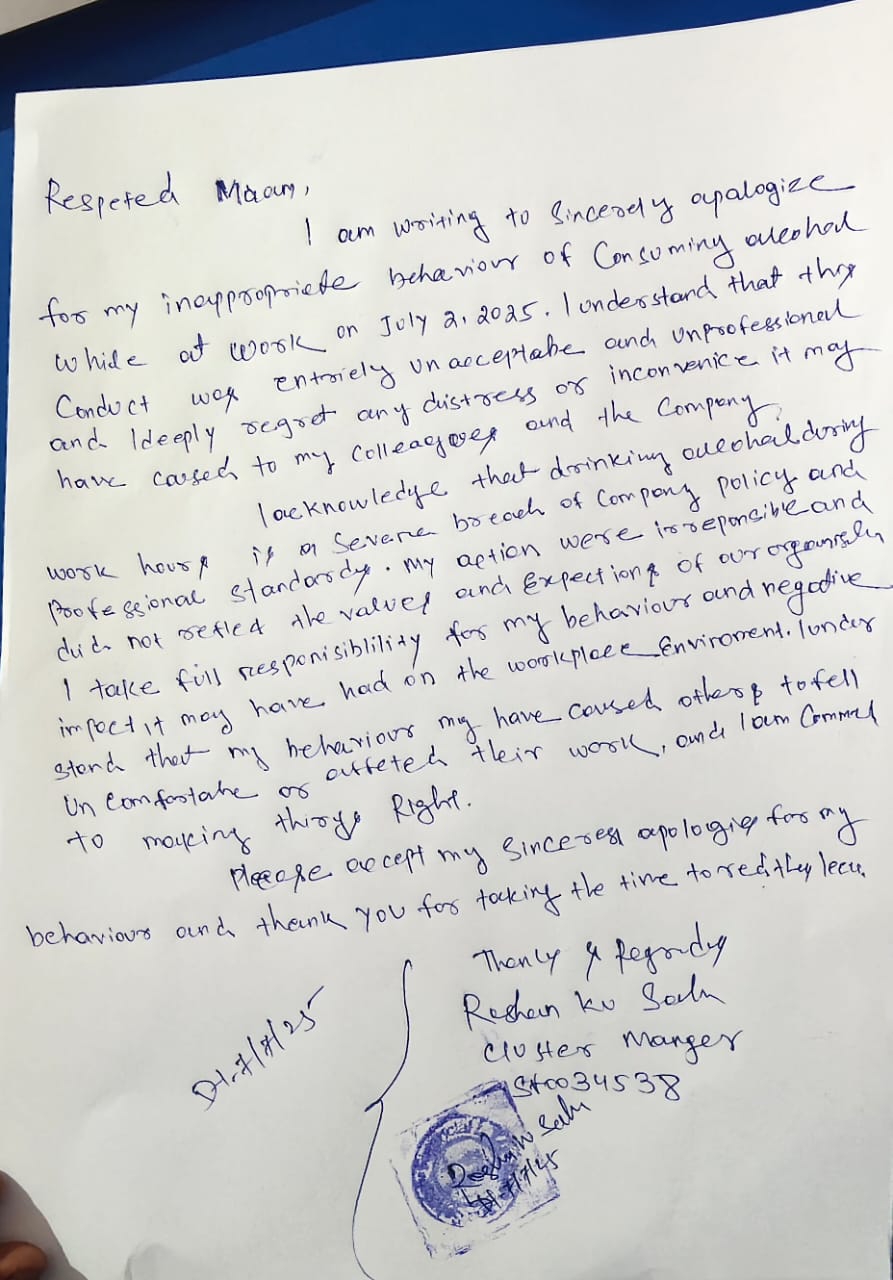 Respeted Maam,
I am writing to Sincerely apalogize
for my inappropriete behaviour of Consuming alcohol
while at work on July 2, 2025. I understand that this
Conduct was entriely unacceptabe and unprofessional
and I deeply regret any distress or inconvenice it may
have caused to my colleagues and the Company.
I acknowledge that drinking alcohail during
work hours is a Severe breach of Company policy and
Professional standards. My action were irreponsible and
did not refled the values and Expections of our
I take full responisiblility for my behaviour and negative
impact it may have had on the workplace Enviroment. I under
stand that my behaviour my have caused others to fell
Un Comfortabe or affeted their work, and I am
to makeing things Right.
Please accept my Sincerest apologies for my
behaviour and thank you for taking the time to
Thanks & Regards
Ku
Cluster Manger
034538
Dt. 7/7/25
7/7/25